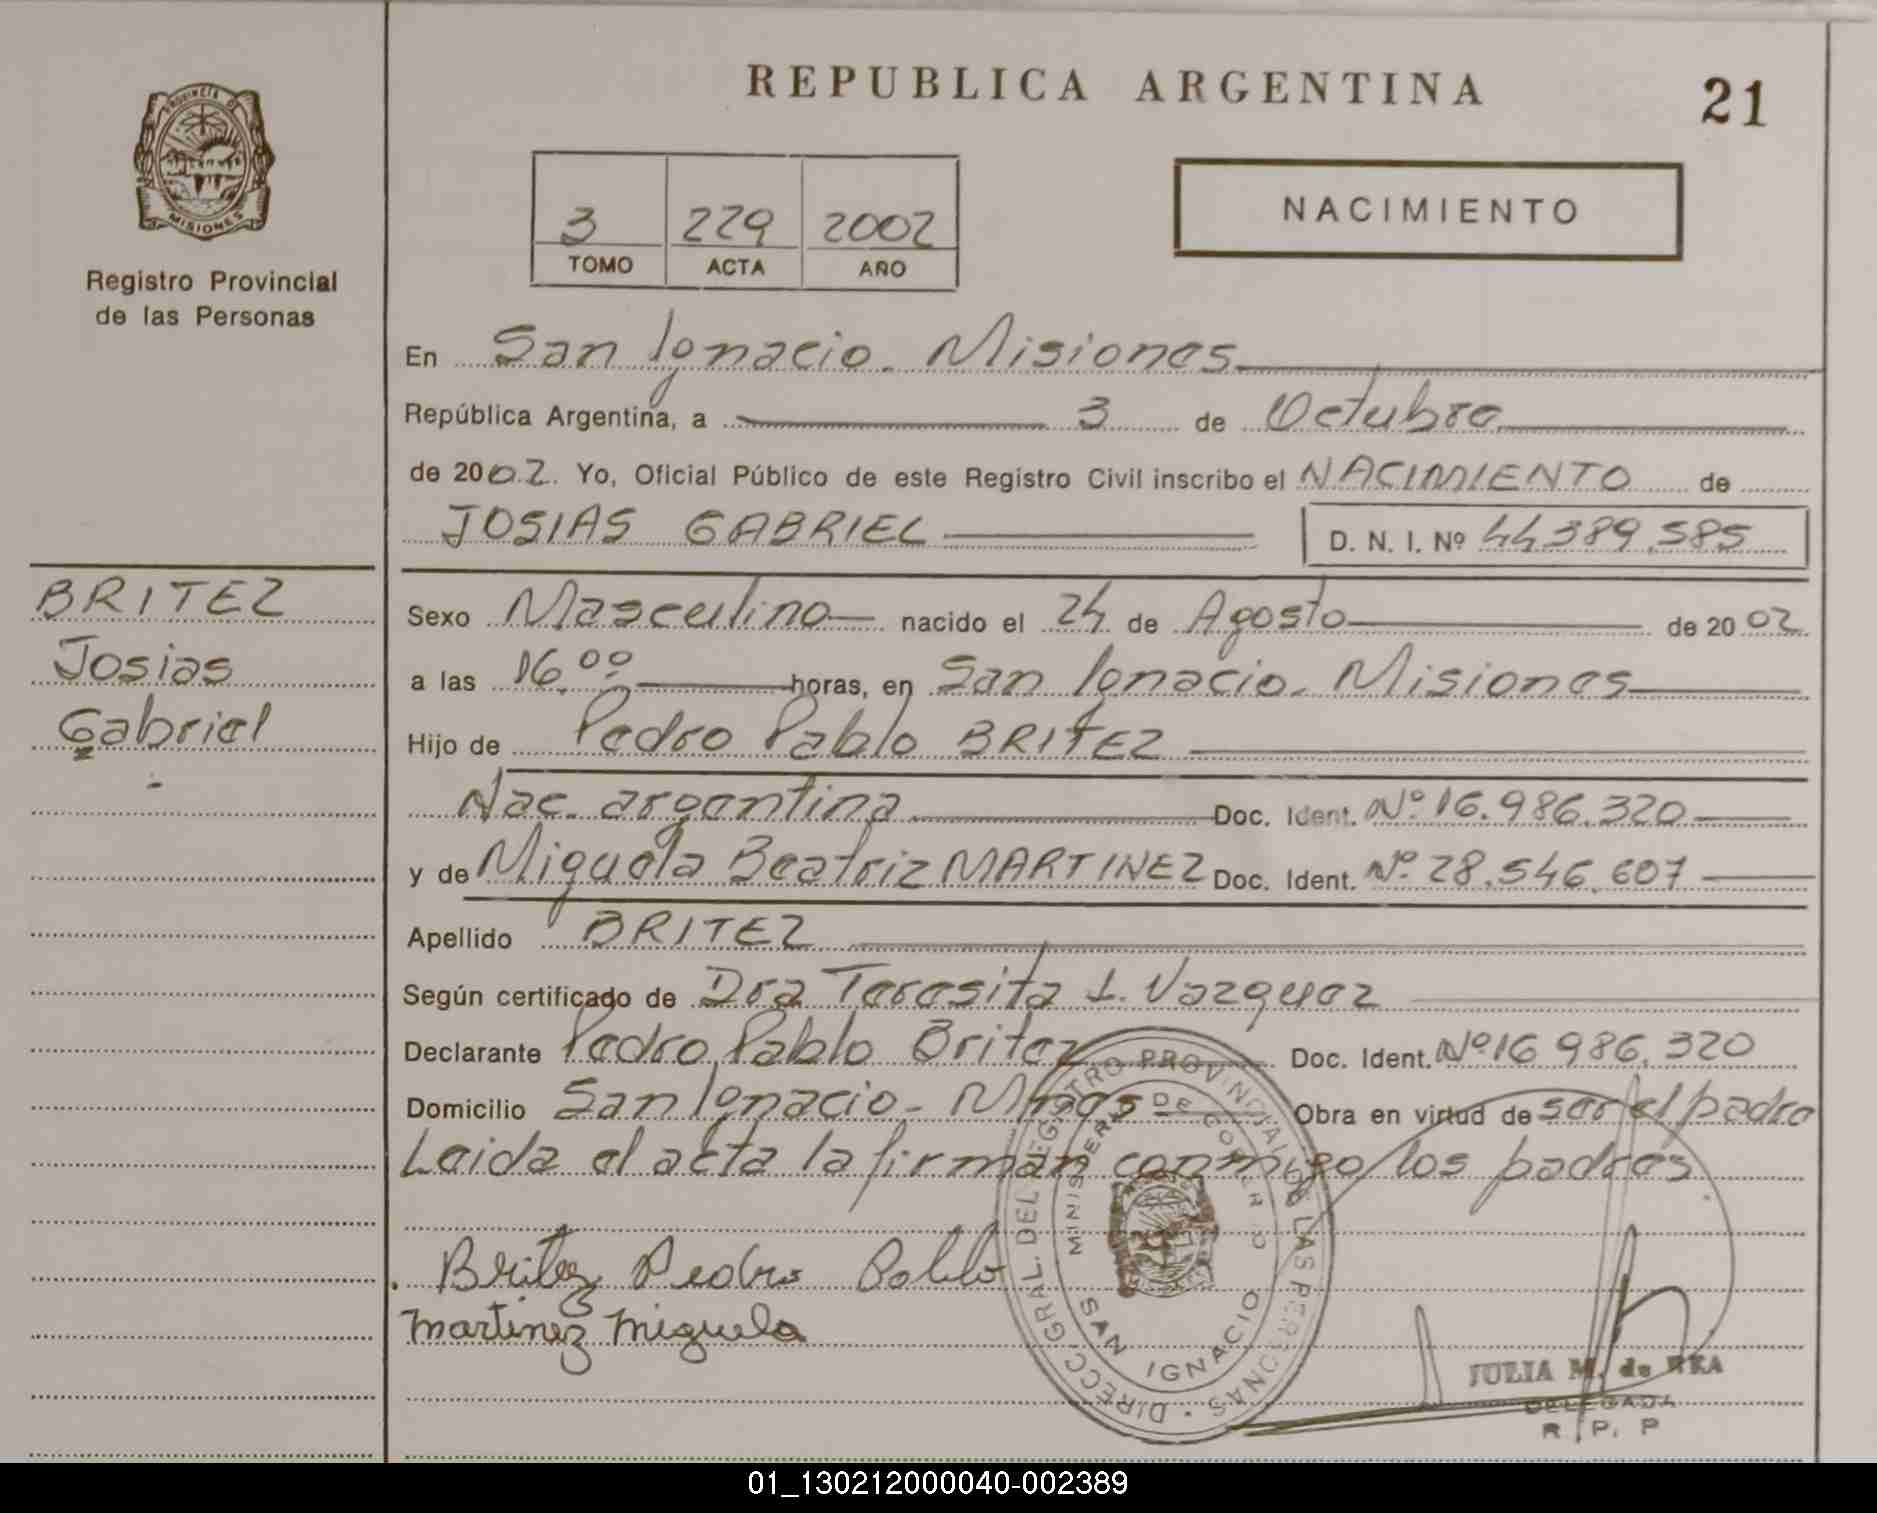 REPUBLICA ARGENTINA
21
PROVINCIA DE
MISIONES
Registro Provincial
de las Personas
3 229 2002
TOMO ACTA AÑO
NACIMIENTO
En San Ignacio. Misiones
República Argentina, a 3 de Octubre
de 2002. Yo, Oficial Público de este Registro Civil inscribo el NACIMIENTO de
JOSIAS GABRIEL D. N. I. Nº 44389.585
BRITEZ
Josias
Gabriel
Sexo Masculino nacido el 24 de Agosto de 2002
a las 16.00 horas, en San Ignacio. Misiones
Hijo de Pedro Pablo BRITEZ
Nac. argentina Doc. Ident. Nº 16.986.320
y de Miguela Beatriz MARTINEZ Doc. Ident. Nº 28.546.607
Apellido BRITEZ
Según certificado de Dra Teresita L. Vazquez
Declarante Pedro Pablo Britez Doc. Ident. Nº 16 986.320
Domicilio San Ignacio - Mnes Obra en virtud de ser el padre
Leida el acta la firman conmigo los padres
Britez Pedro Pablo
Martinez Miguela
DIRECC. GRAL. DEL REGISTRO PROVINCIAL DE LAS PERSONAS
MINISTERIO DE GOBIERNO
SAN IGNACIO
JULIA M. de
DELEGADA
R. P. P
01_130212000040-002389